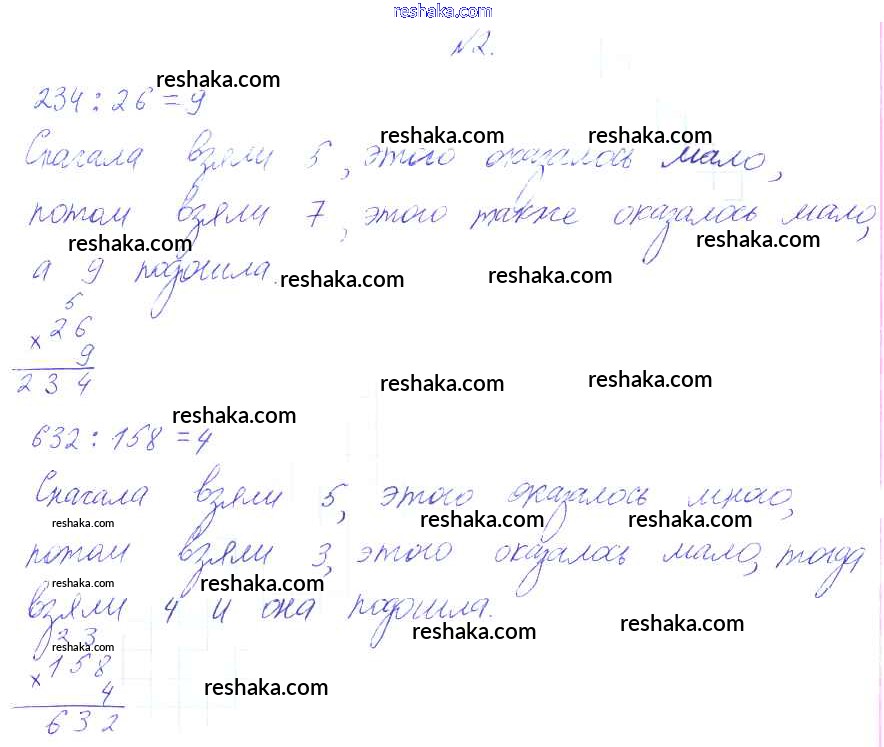 reshaka.com
№2.
reshaka.com
234 : 26 = 9
reshaka.com reshaka.com
Сначала взяли 5, этого оказалось мало,
потом взяли 7, этого также оказалось мало,
reshaka.com reshaka.com
а 9 подошла.
reshaka.com reshaka.com
5
× 26
9
234
reshaka.com reshaka.com
reshaka.com
632 : 158 = 4
Сначала взяли 5, этого оказалось много,
reshaka.com reshaka.com reshaka.com
потом взяли 3, этого оказалось мало, тогда
reshaka.com reshaka.com
взяли 4 и она подошла.
reshaka.com reshaka.com
2 3
reshaka.com
× 158
4
reshaka.com
632